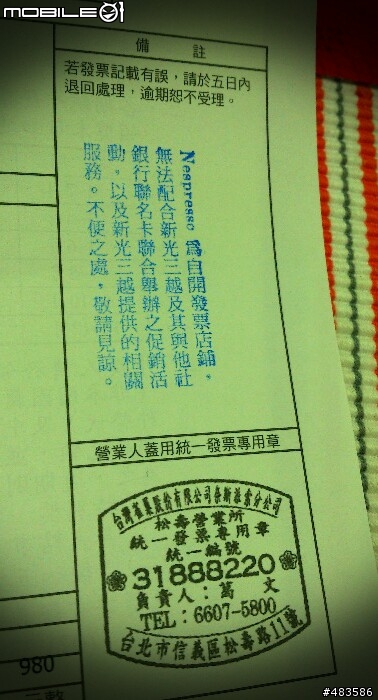 MOBILE01
備註
若發票記載有誤,請於五日內
退回處理,逾期恕不受理。
Nespresso 為自開發票店鋪,
無法配合新光三越及其與他社
銀行聯名卡聯合舉辦之促銷活
動,以及新光三越提供的相關
服務。不便之處,敬請見諒。
營業人蓋用統一發票專用章
台灣雀巢股份有限公司奈斯派索分公司
松壽營業所
統一發票專用章
統一編號
31888220
負責人:萬 文
TEL:6607-5800
台北市信義區松壽路11號
980
#483586